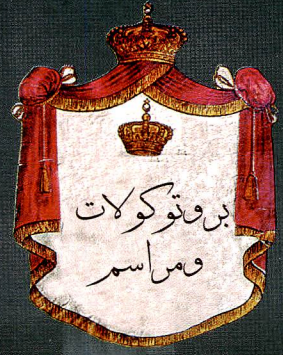 بروتوكولات
ومراسم